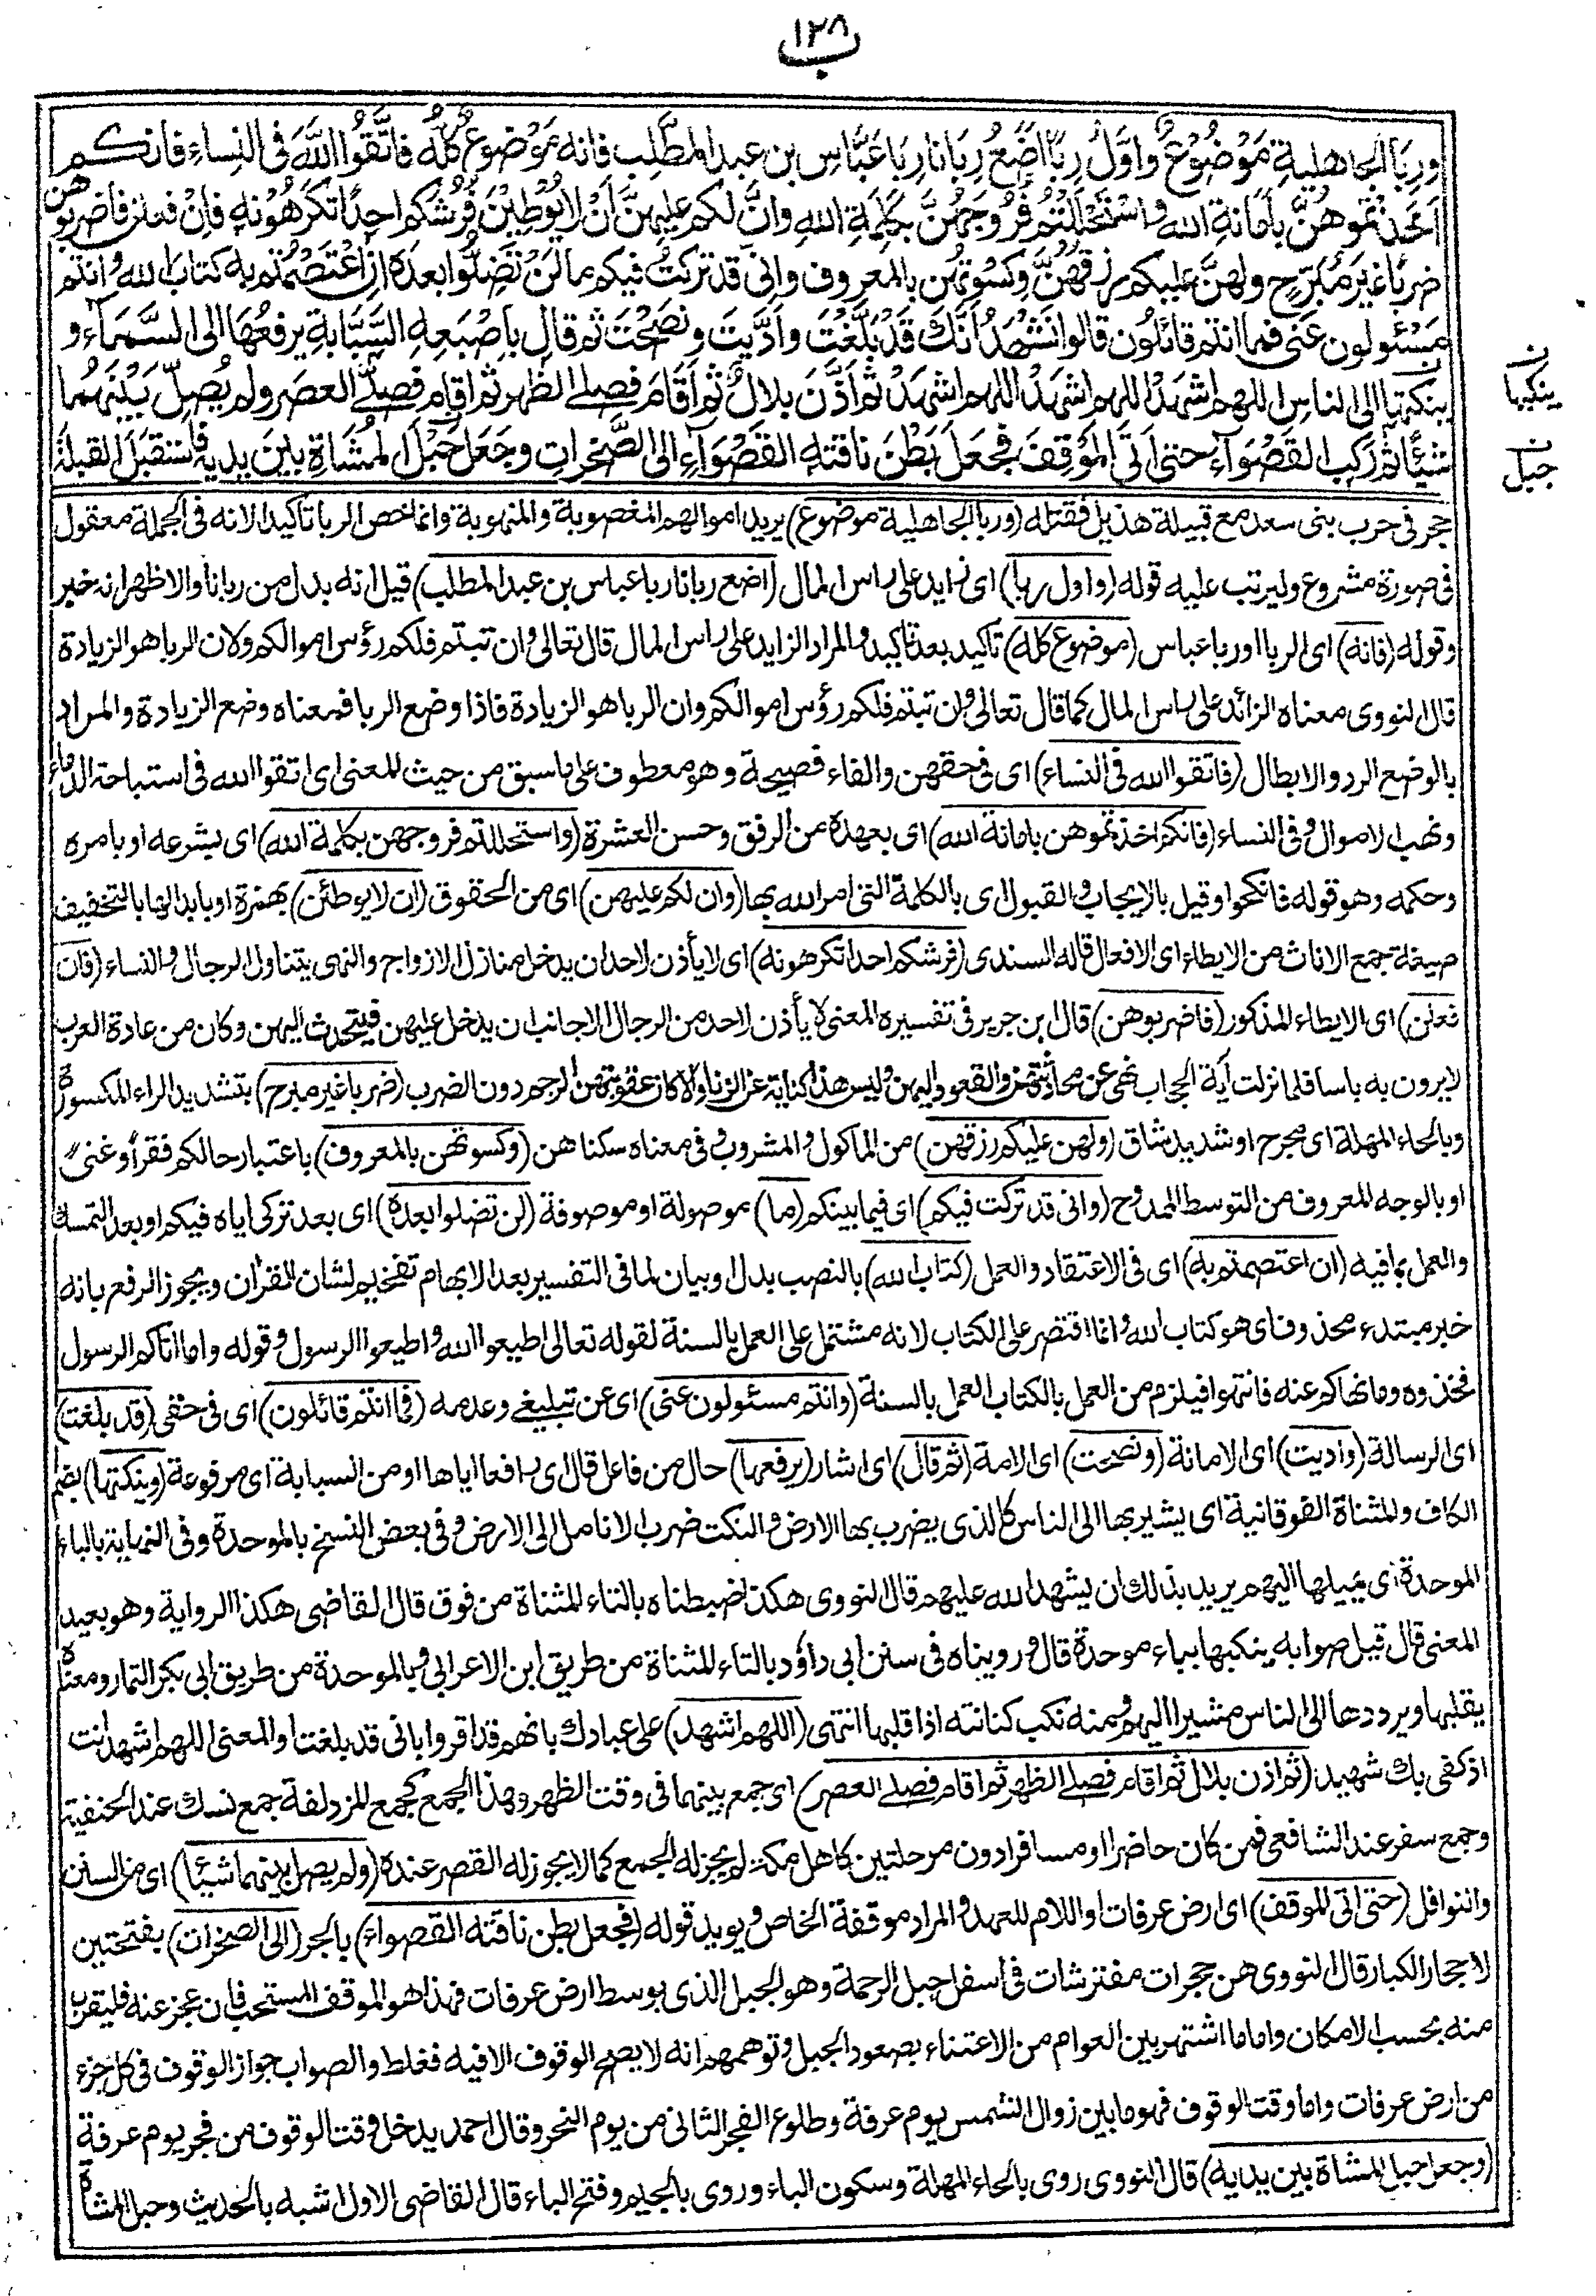 ١٢٨
ب
ورِبَا الجاهليةِ مَوْضُوْعٌ واوَّلُ رِبًا اَضَعُ رِبَانا رِبَا عَبَّاسِ بن عبد المطَّلِب فانه مَوْضوع كُلُّه فاتَّقُوا اللّٰهَ فى النِساءِ فانكم
اَخَذْتموهُنَّ باَمَانةِ الله واسْتَحْلَلْتُم فُرُوجَهُنَّ بكَلِمَةِ اللهِ وانَّ لكم عليهِنَّ اَنْ لا يُوْطِيْنَ فُرُشَكم احدًا تكرَهُوْنه فاِنْ فعلن فاضربوهن
ضربًا غيرَ مُبَرِّحٍ ولهنَّ عليكم رزقُهُنَّ وكسْوتُهن بالمعروف وانى قد تركتُ فيكم ما لَنْ تَضِلُّوا بعدَه اِنِ اعْتَصَمْتم به كتابَ الله وانتم
مَسْئولون عَنى فما انتم قائلُون قالوا نَشْهَدُ اَنَّكَ قَدْ بَلَّغْتَ واَدَّيتَ ونصَحْتَ ثم قال باِصْبَعِهِ السَّبَّابةِ يرفعُهَا الى السَّمَآءِ و
ينكتها الى الناس اللهم اشهَدْ اللهم اشهَدْ اللهم اشهَدْ ثم اَذَّنَ بلالٌ ثم اَقَامَ فصلى الظهر ثم اقام فصلّى العصر ولم يُصلِّ بَيْنَهُما
شيئًا ثم ركِبَ القَصْوَآءَ حتى اَتَى المَوْقِفَ فجَعَلَ بَطْنَ ناقتهِ القَصْوَآءِ الى الصَّخراتِ وجَعَلَ حَبْلَ المُشَاةِ بينَ يديه فاستقبَلَ القبلةَ
ن
ينكبها
ن
جبل
حجر فى حرب بنى سعد مع قبيلة هذيل فقتله (وربا الجاهلية موضوع) يريد اموالهم المغصوبة والمنهوبة وانما خص الربا تأكيدا لانه فى الجملة معقول
فى صورة مشروع وليرتب عليه قوله (واول ربا) اى زايد على راس المال (اضع ربانا ربا عباس بن عبد المطلب) قيل انه بدل من ربانا والاظهر انه خبر
وقوله (فانه) اى الربا او ربا عباس (موضوع كله) تأكيد بعد تأكيد والمراد الزايد على راس المال قال تعالى وان تبتم فلكم رؤس اموالكم ولان الربا هو الزيادة
قال النووى معناه الزائد على راس المال كما قال تعالى وان تبتم فلكم رؤس اموالكم وان الربا هو الزيادة فاذا وضع الربا فمعناه وضع الزيادة والمراد
بالوضع الرد والابطال (فاتقوا الله فى النساء) اى فى حقهن والفاء فصيحة وهو معطوف على ما سبق من حيث المعنى اى اتقوا الله فى استباحة الدماء
ونهب الاموال وفى النساء (فانكم اخذتموهن بامانة الله) اى بعهده من الرفق وحسن العشرة (واستحللتم فروجهن بكلمة الله) اى بشرعه او بامره
وحكمه وهو قوله فانكحوا وقيل بالايجاب والقبول اى بالكلمة التى امر الله بها (وان لكم عليهن) اى من الحقوق (ان لا يوطئن) بهمزة او بابدالها بالتخفيف
صيغة جمع الاناث من الايطاء اى الافعال قاله السندى (فرشكم احدا تكرهونه) اى لا يأذن لاحد ان يدخل منازل الازواج والنهى يتناول الرجال والنساء (فان
فعلن) اى الايطاء المذكور (فاضربوهن) قال ابن جرير فى تفسيره المعنى لا يأذن لاحد من الرجال الاجانب ان يدخل عليهن فيتحدث اليهن وكان من عادة العرب
لا يرون به باسا فلما نزلت آية الحجاب نهى عن محادثتهن والقعود اليهن وليس هذا كناية عن الزنا والا كان عقوبتهن الرجم دون الضرب (ضربا غير مبرح) بتشديد الراء المكسورة
وبالحاء المهملة اى مجرح او شديد شاق (ولهن عليكم رزقهن) من الماكول والمشروب وفى معناه سكناهن (وكسوتهن بالمعروف) باعتبار حالكم فقرا وغنى
او بالوجه المعروف من التوسط الممدوح (وانى قد تركت فيكم) اى فيما بينكم (ما) موصولة او موصوفة (لن تضلوا بعده) اى بعد تركى اياه فيكم او بعد التمسك
والعمل بما فيه (ان اعتصمتم به) اى فى الاعتقاد والعمل (كتاب الله) بالنصب بدل او بيان لما فى التفسير بعد الابهام تفخيم لشان القران ويجوز الرفع بانه
خبر مبتدء محذوف اى هو كتاب الله وانما اقتصر على الكتاب لانه مشتمل على العمل بالسنة لقوله تعالى اطيعوا الله واطيعوا الرسول وقوله واما اتاكم الرسول
فخذوه وما نهاكم عنه فانتهوا فيلزم من العمل بالكتاب العمل بالسنة (وانتم مسئولون عنى) اى عن تبليغى وعدمه (فما انتم قائلون) اى فى حقى (قد بلغت)
اى الرسالة (واديت) اى الامانة (ونصحت) اى الامة (ثم قال) اى اشار (يرفعها) حال من فاعل قال اى رافعا اياها او من السبابة اى مرفوعة (وينكتها) بضم
الكاف والمثناة الفوقانية اى يشير بها الى الناس كالذى يضرب بها الارض والنكت ضرب الانامل الى الارض وفى بعض النسخ بالموحدة وفى النهاية بالباء
الموحدة اى يميلها اليهم يريد بذلك ان يشهد الله عليهم قال النووى هكذا ضبطناه بالتاء المثناة من فوق قال القاضى هكذا الرواية وهو بعيد
المعنى قال قيل صوابه ينكبها بباء موحدة قال ورويناه فى سنن ابى داؤد بالتاء المثناة من طريق ابن الاعرابى وبالموحدة من طريق ابى بكر التمار ومعناه
يقلبها ويرددها الى الناس مشيرا اليهم ومنه نكب كنانته اذا قلبها انتهى (اللهم اشهد) على عبادك بانهم قد اقروا بانى قد بلغت او المعنى اللهم اشهد انت
اذ كفى بك شهيدا (ثم اذن بلال ثم اقام فصلى الظهر ثم اقام فصلى العصر) اى جمع بينهما فى وقت الظهر وهذا الجمع كجمع المزدلفة جمع نسك عند الحنفية
وجمع سفر عند الشافعى فمن كان حاضرا او مسافرا دون مرحلتين كاهل مكة لم يجز له الجمع كما لا يجوز له القصر عنده (ولم يصل بينهما شيئا) اى من السنن
والنوافل (حتى اتى الموقف) اى ارض عرفات او اللام للعهد والمراد موقفة الخاص ويويد قوله (فجعل بطن ناقته القصواء) بالجر (الى الصخرات) بفتحتين
لاحجار الكبار قال النووى هن حجرات مفترشات فى اسفل جبل الرحمة وهو الجبل الذى بوسط ارض عرفات فهذا هو الموقف المستحب فان عجز عنه فليقرب
منه بحسب الامكان واما ما اشتهر بين العوام من الاعتناء بصعود الجبل وتوهمهم انه لا يصح الوقوف الا فيه فغلط والصواب جواز الوقوف فى كل جزء
من ارض عرفات واما وقت الوقوف فهو ما بين زوال الشمس يوم عرفة وطلوع الفجر الثانى من يوم النحر وقال احمد يدخل وقت الوقوف من فجر يوم عرفة
(وجعل حبل المشاة بين يديه) قال النووى روى بالحاء المهملة وسكون الباء وروى بالجيم وفتح الباء قال القاضى الاول اشبه بالحديث وحبل المشاة